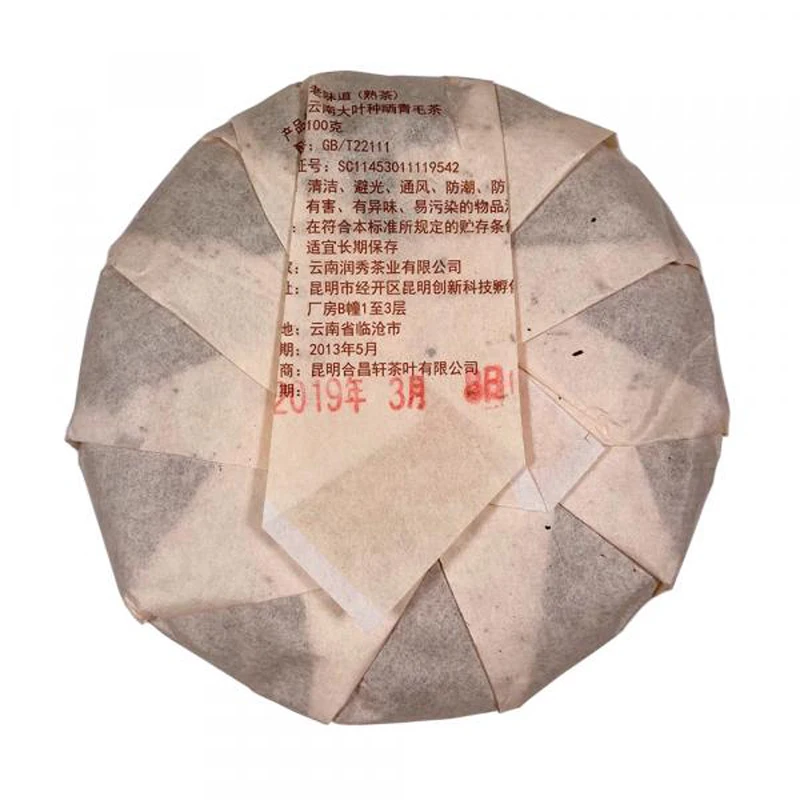 老味道（熟茶）
云南大叶种晒青毛茶
产品
100克
：GB/T22111
证号：SC11453011119542
清洁、避光、通风、防潮、防
有害、有异味、易污染的物品
：在符合本标准所规定的贮存条
适宜长期保存
：云南润秀茶业有限公司
址：昆明市经开区昆明创新科技孵
厂房B幢1至3层
地：云南省临沧市
期：2013年5月
商：昆明合昌轩茶叶有限公司
期：
2019年 3月 8日